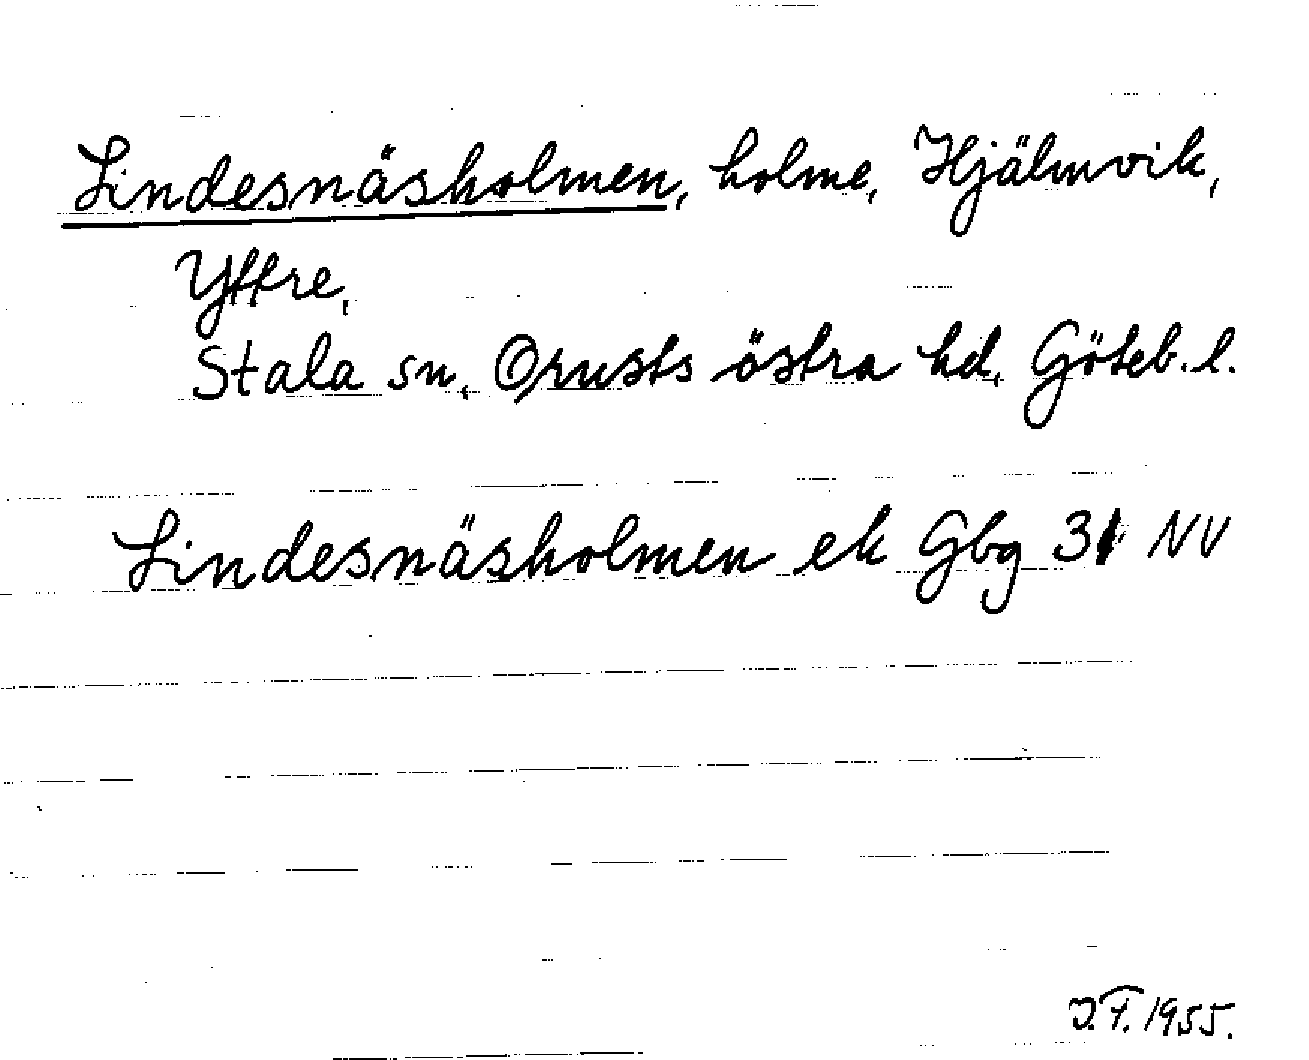 Lindesnäsholmen, holme, Hjälmvik,
Yttre,
Stala sn, Orusts östra hd, Göteb. l.
Lindesnäsholmen ek Gbg 31 NV
J.F. 1955.